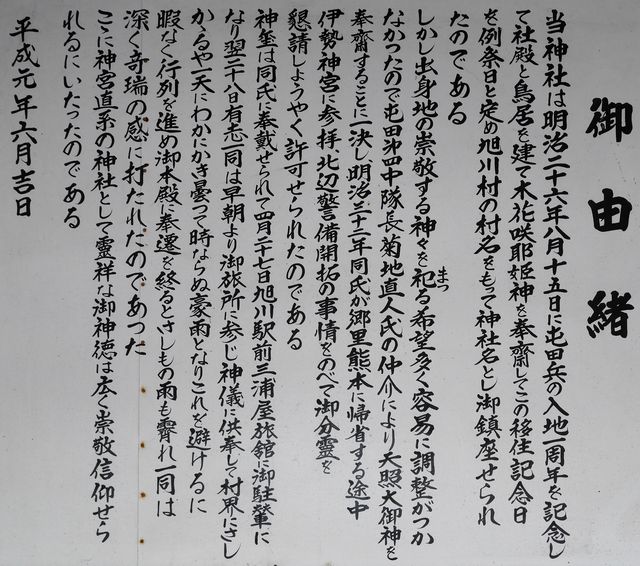 御由緒
当神社は明治二十六年八月十五日に屯田兵の入地一周年を記念し
て社殿と鳥居を建て木花咲耶姫神を奉齋してこの移住記念日
を例祭日と定め旭川村の村名をもって神社名とし御鎮座せられ
たのである
しかし出身地の崇敬する神々を祀る希望多く容易に調整がつか
まつ
なかったので屯田第四中隊長菊地直人氏の仲介により天照大御神を
奉齋することに一決し、明治三十二年同氏が郷里熊本に帰省する途中
伊勢神宮に参拝、北辺警備開拓の事情をのべて御分霊を
懇請しようやく許可せられたのである
神璽は同氏に奉戴せられて四月二十七日旭川駅前三浦屋旅舘に御駐輦に
なり翌二十八日有志一同は早朝より御旅所に参じ神儀に供奉して村界にさし
かゝるや一天にわかにかき曇つて時ならぬ豪雨となりこれを避けるに
暇なく行列を進め御本殿に奉遷を終るとさしもの雨も霽れ一同は
深く奇瑞の感に打たれたのであつた
こゝに神宮直系の神社として靈祥な御神徳は広く崇敬信仰せら
れるにいたつたのである
平成元年六月吉日